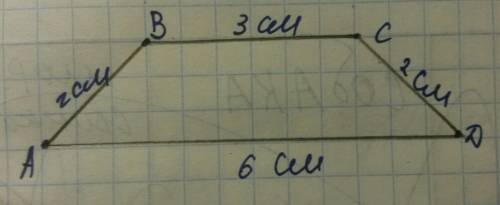 B 3 см C
2 см 2 см
A D
6 см